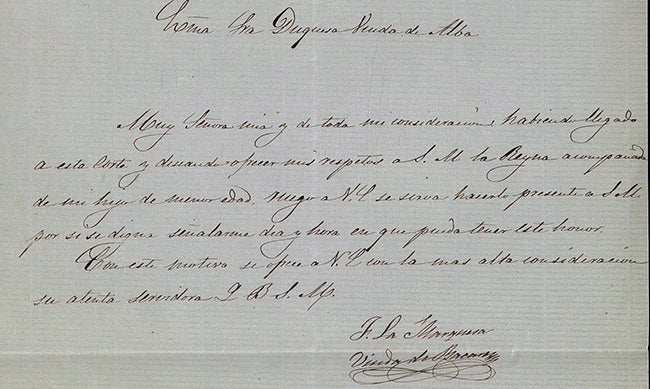 Exma Sra Duquesa Viuda de Alba
Muy Señora mia y de toda mi consideracion; habiendo llegado
a esta Corte y deseando ofrecer mis respetos a S. M la Reyna acompañada
de mi hijo de menor edad, ruego a V.E se sirva hacerlo presente a S M
por si se digna señalarme dia y hora en que pueda tener este honor.
Con este motivo se ofrece a V.E con la mas alta consideracion
su atenta servidora Q B S. M.
F. La Marquesa
Viuda de